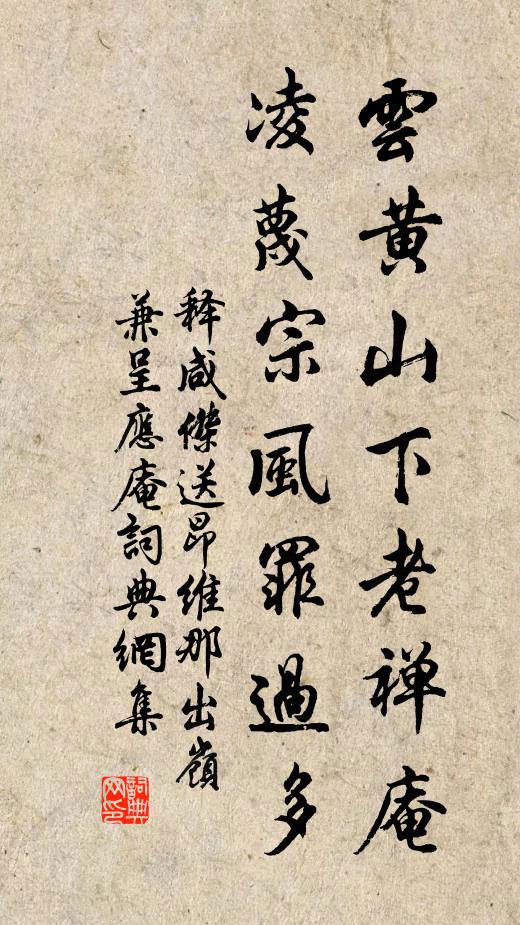 雲黄山下老禅庵
凌蔑宗風罪過多
释咸傑送昂維那出嶺
兼呈應庵詞典網集
詞典網印